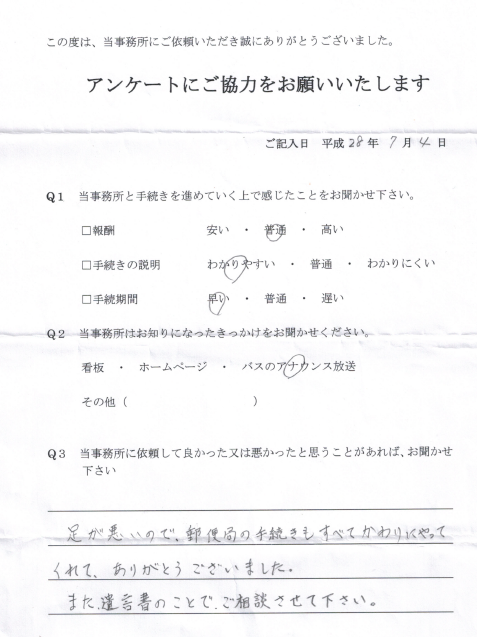 この度は、当事務所にご依頼いただき誠にありがとうございました。
アンケートにご協力をお願いいたします
ご記入日　平成 28 年　7 月 4 日
Q1　当事務所と手続きを進めていく上で感じたことをお聞かせ下さい。
□報酬　　安い ・ 普通 ・ 高い
□手続きの説明　　わかりやすい ・ 普通 ・ わかりにくい
□手続期間　　早い ・ 普通 ・ 遅い
Q2　当事務所はお知りになったきっかけをお聞かせください。
看板 ・ ホームページ ・ バスのアナウンス放送
その他（　　　　　　　　　）
Q3　当事務所に依頼して良かった又は悪かったと思うことがあれば、お聞かせ
下さい
足が悪いので、郵便局の手続きもすべてかわりにやって
くれて、ありがとうございました。
また、遺言書のことで、ご相談させて下さい。